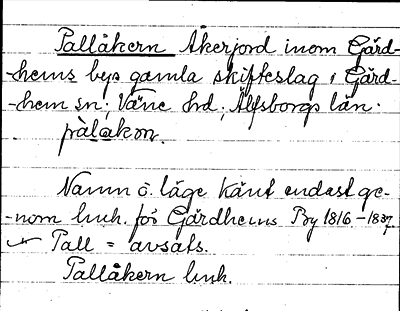 Pallåkern Åkerjord inom Gärd-
-hems bys gamla skifteslag i Gärd-
-hem sn; Väne hd; Älfsborgs län.
pàlåkơn.
Namn o. läge känt endast ge-
-nom huh. för Gärdhems By 1816-1837.
Pall = avsats.
Pallåkern huh.